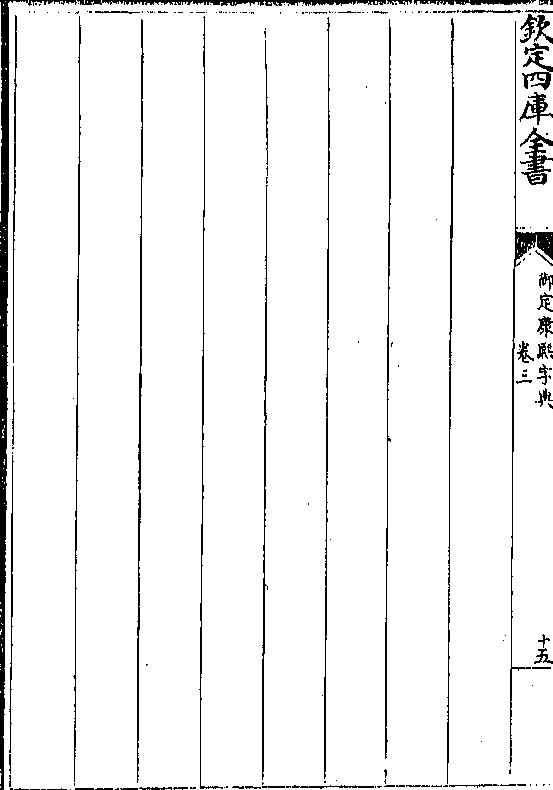 欽定四庫全書
御定康熙字典
卷三
十五